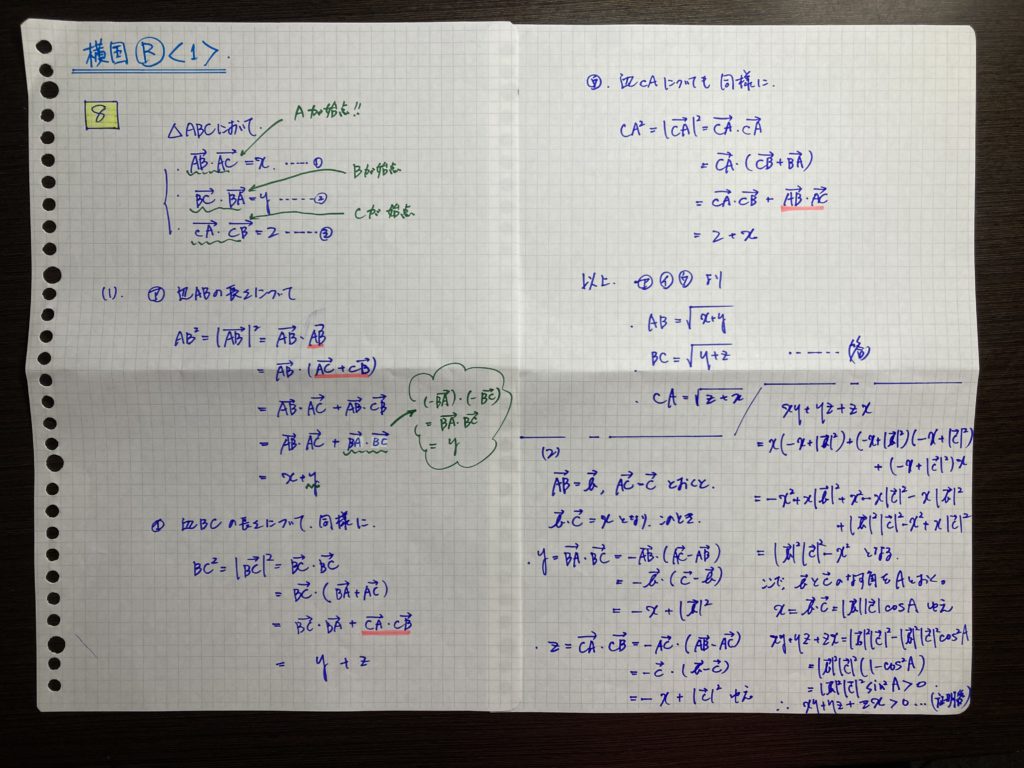 横国 Ⓡ <1>.
8
△ABCにおいて.
Aが始点!!
AB→・AC→ = x. ‥‥‥①
Bが始点
BC→・BA→ = y ‥‥‥②
Cが始点
CA→・CB→ = z ‥‥‥③
(1). ㋐ 辺ABの長さについて
AB² = |AB→|² = AB→・AB→
= AB→・(AC→+CB→)
= AB→・AC→ + AB→・CB→
= AB→・AC→ + BA→・BC→
(-BA→)・(-BC→)
= BA→・BC→
= y
= x+y
㋑ 辺BCの長さについて、同様に.
BC² = |BC→|² = BC→・BC→
= BC→・(BA→+AC→)
= BC→・BA→ + CA→・CB→
= y + z
㋒. 辺CAについても 同様に.
CA² = |CA→|² = CA→・CA→
= CA→・(CB→+BA→)
= CA→・CB→ + AB→・AC→
= z + x
以上. ㋐㋑㋒ より
・AB = √x+y
BC = √y+z ‥‥‥(答)
・CA = √z+x
(2)
AB→=b→, AC→=c→ とおくと.
b→・c→ = x となり. このとき.
・y = BA→・BC→ = -AB→・(AC→-AB→)
= -b→・(c→-b→)
= -x + |b→|²
・z = CA→・CB→ = -AC→・(AB→-AC→)
= -c→・(b→-c→)
= -x + |c→|² ゆえ
xy+yz+zx
= x(-x+|b→|²)+(-x+|b→|²)(-x+|c→|²)
+(-x+|c→|²)x
= -x²+x|b→|²+x²-x|c→|²-x|b→|²
+|b→|²|c→|²-x²+x|c→|²
= |b→|²|c→|²-x² となる.
ここで、b→とc→のなす角をAとおく。
x = b→・c→ = |b→||c→|cosA ゆえ
xy+yz+zx = |b→|²|c→|²-|b→|²|c→|²cos²A
= |b→|²|c→|²(1-cos²A)
= |b→|²|c→|²sin²A > 0.
∴ xy+yz+zx > 0 …(証明終)